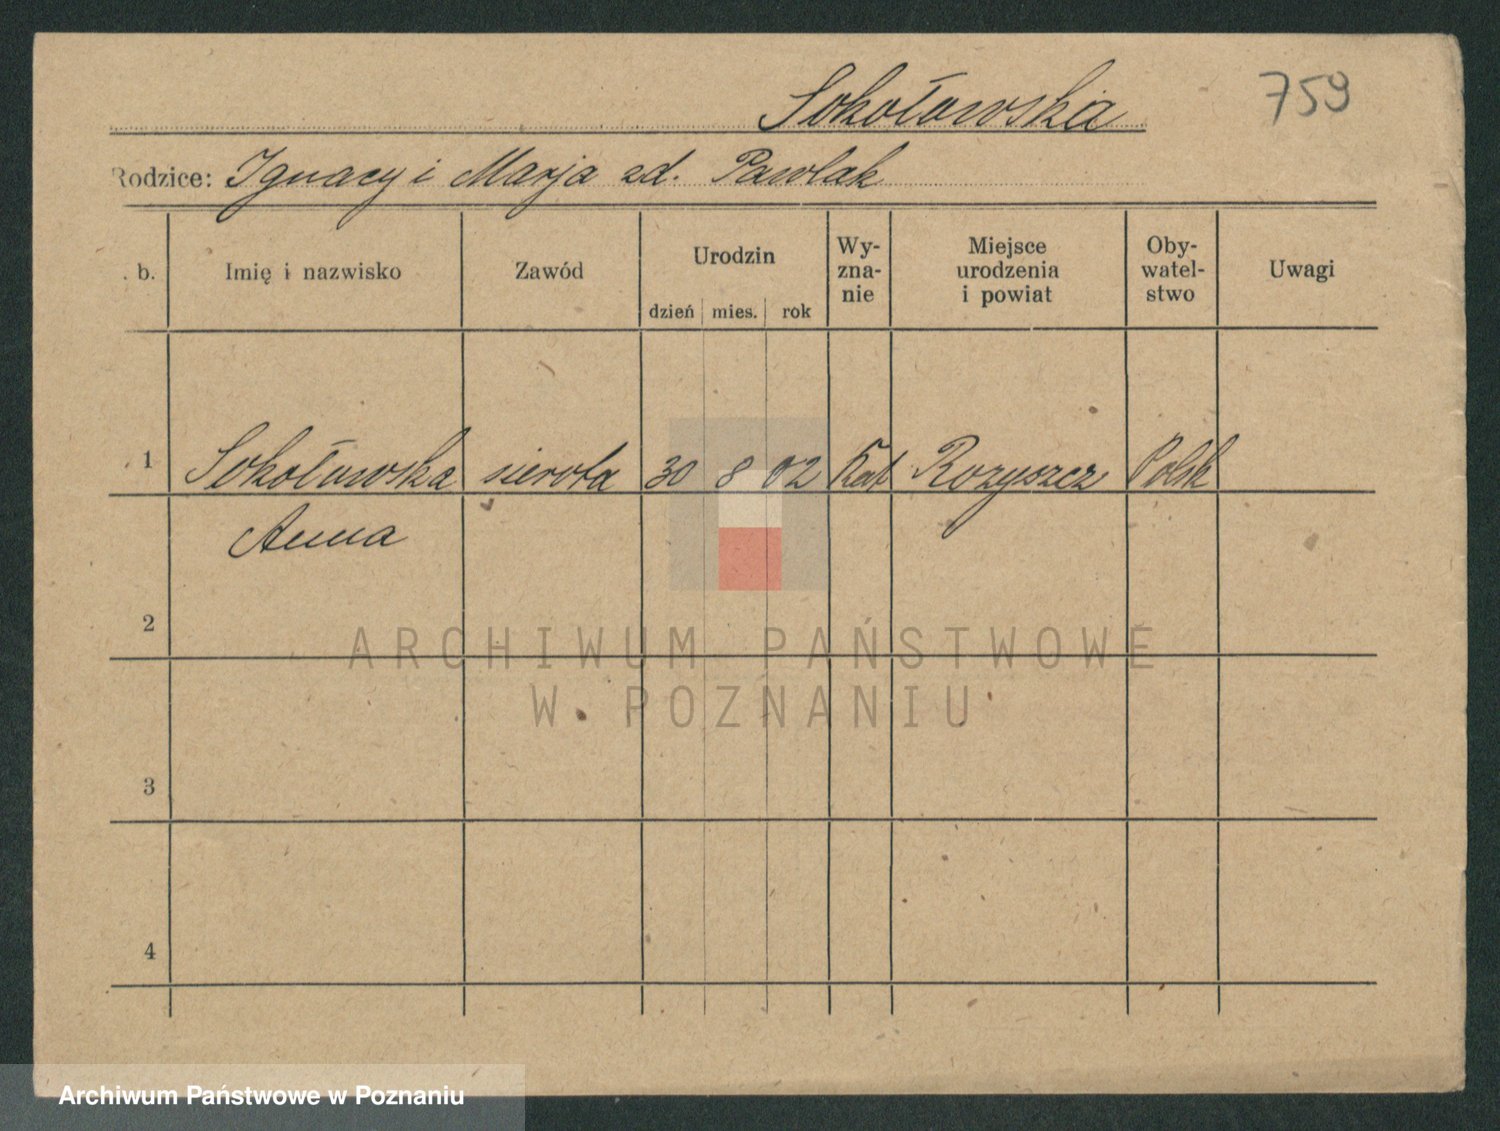 Sokołowska 759
Rodzice: Ignacy i Marja zd. Pawlak
. b. Imię i nazwisko Zawód Urodzin dzień mies. rok Wy-zna-nie Miejsce urodzenia i powiat Oby-watel-stwo Uwagi
1 Sokołowska sierota 30 8 02 Kat Rozyszcz Polsk
Anna
2
ARCHIWUM PAŃSTWOWE
W POZNANIU
3
4
Archiwum Państwowe w Poznaniu